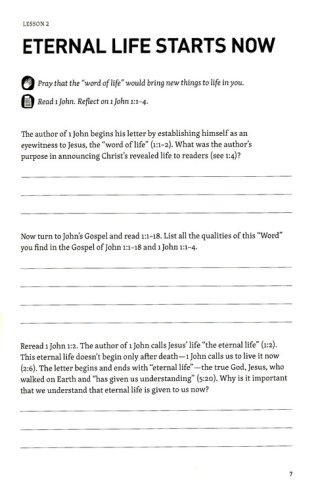 LESSON 2
ETERNAL LIFE STARTS NOW
Pray that the “word of life” would bring new things to life in you.
Read 1 John. Reflect on 1 John 1:1–4.
The author of 1 John begins his letter by establishing himself as an
eyewitness to Jesus, the “word of life” (1:1–2). What was the author’s
purpose in announcing Christ’s revealed life to readers (see 1:4)?
Now turn to John’s Gospel and read 1:1–18. List all the qualities of this “Word”
you find in the Gospel of John 1:1–18 and 1 John 1:1–4.
Reread 1 John 1:2. The author of 1 John calls Jesus’ life “the eternal life” (1:2).
This eternal life doesn’t begin only after death—1 John calls us to live it now
(2:6). The letter begins and ends with “eternal life”—the true God, Jesus, who
walked on Earth and “has given us understanding” (5:20). Why is it important
that we understand that eternal life is given to us now?
7